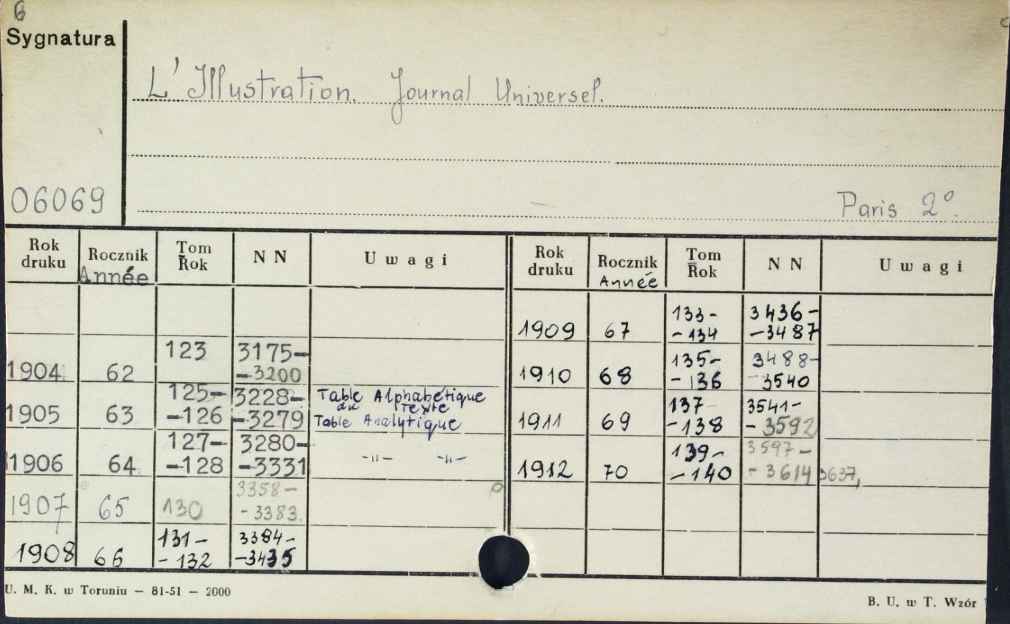 6
Sygnatura
L' Illustration. Journal Universel.
06069
Paris 2°.
Rok druku Rocznik Année Tom Rok N N Uwagi
1904. 62 123 3175-
-3200
1905 63 125- 3228- Table Alphabétique
du Texte
-126 -3279 Table Analytique
1906 64 127- 3280-
-128 -3331 -〃- -〃-
1907 65 130 3358-
-3383.
1908 66 131- 3384-
-132 -3435
Rok druku Rocznik Année Tom Rok N N Uwagi
1909 67 133- 3436-
-134 -3487
1910 68 135- 3488-
-136 -3540
1911 69 137- 3541-
-138 -3592
1912 70 139- 3597-
-140 -3614 3637,
U. M. K. w Toruniu — 81-51 — 2000
B. U. w T. Wzór